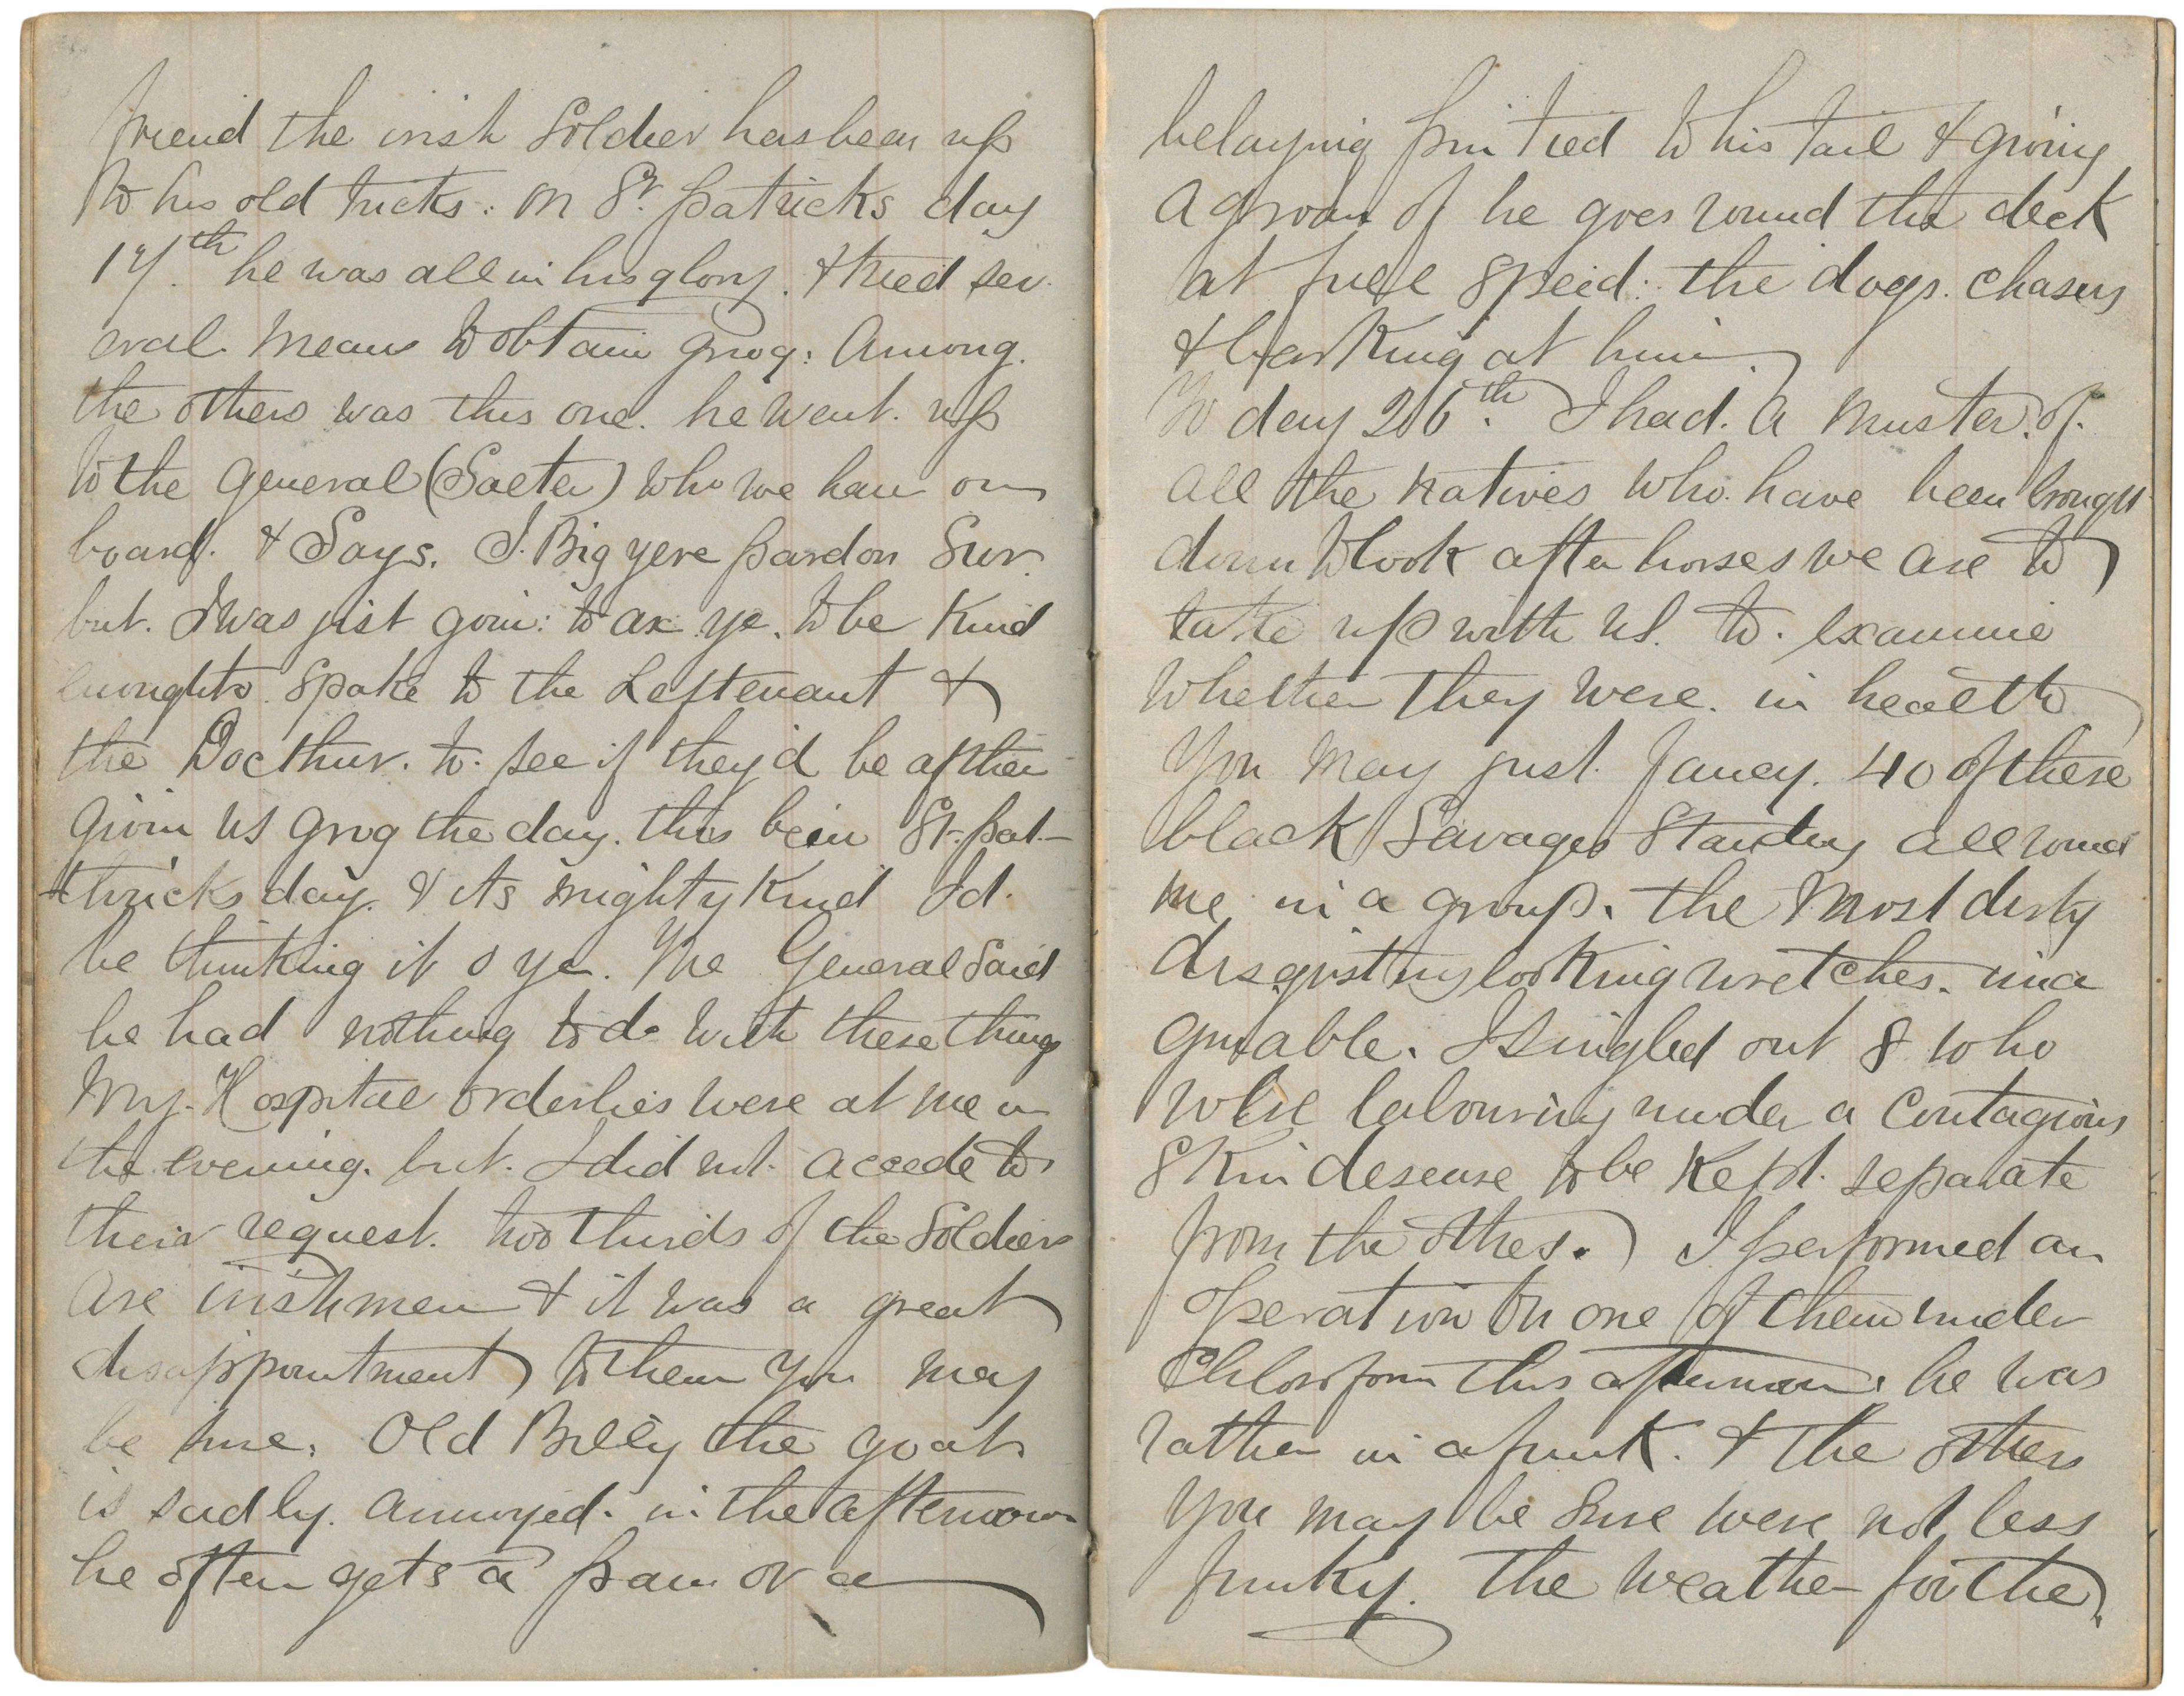 friend the irish Soldier has been up
to his old tricks: on St. patricks day
17th. he was all in his glory. & tried sev-
eral means to obtain grog: Among.
the others was this one. he went. up
to the General (Salter) who we have on
board. & Says. I. Big yere pardon Sur.
but. I was jist goin: to ax ye. to be kind
enough to spake to the Leftenant &
the Docthur. to. see if they'd be afther
givin us grog the day. this bein St. pat-
thricks day. & its mighty kind Id.
be thinking it o ye. The General Said
he had nothing to do with these things
My. Hospital orderlies were at me in
the evening. but. I did not. accede to
their request. two thirds of the Soldiers
are irishmen & it was a great
disappointment to them you may
be sure. Old Billy the goat
is sadly. annoyed. in the afternoon
he often gets a pan or a
belaying pin tied to his tail & giving
a groan off he goes round the deck
at full speed: the dogs. chasing
& barking at him.
To day 26th. I had. a muster. of.
all the natives who. have been brought
down to look after horses we are to
take up with us. to. examine
whether they were. in health
You may just. fancy. 40 of these
black Savages Standing all round
me in a group. the most dirty
disgusting looking wretches. ima
ginable. I singled out 8 who
were labouring under a contagious
skin desease to be kept. separate
from the others. I performed an
operation on one of them under
Chloroform this afternoon. he was
rather in a funk. & the others
you may be sure were not less
funky. The weather for the